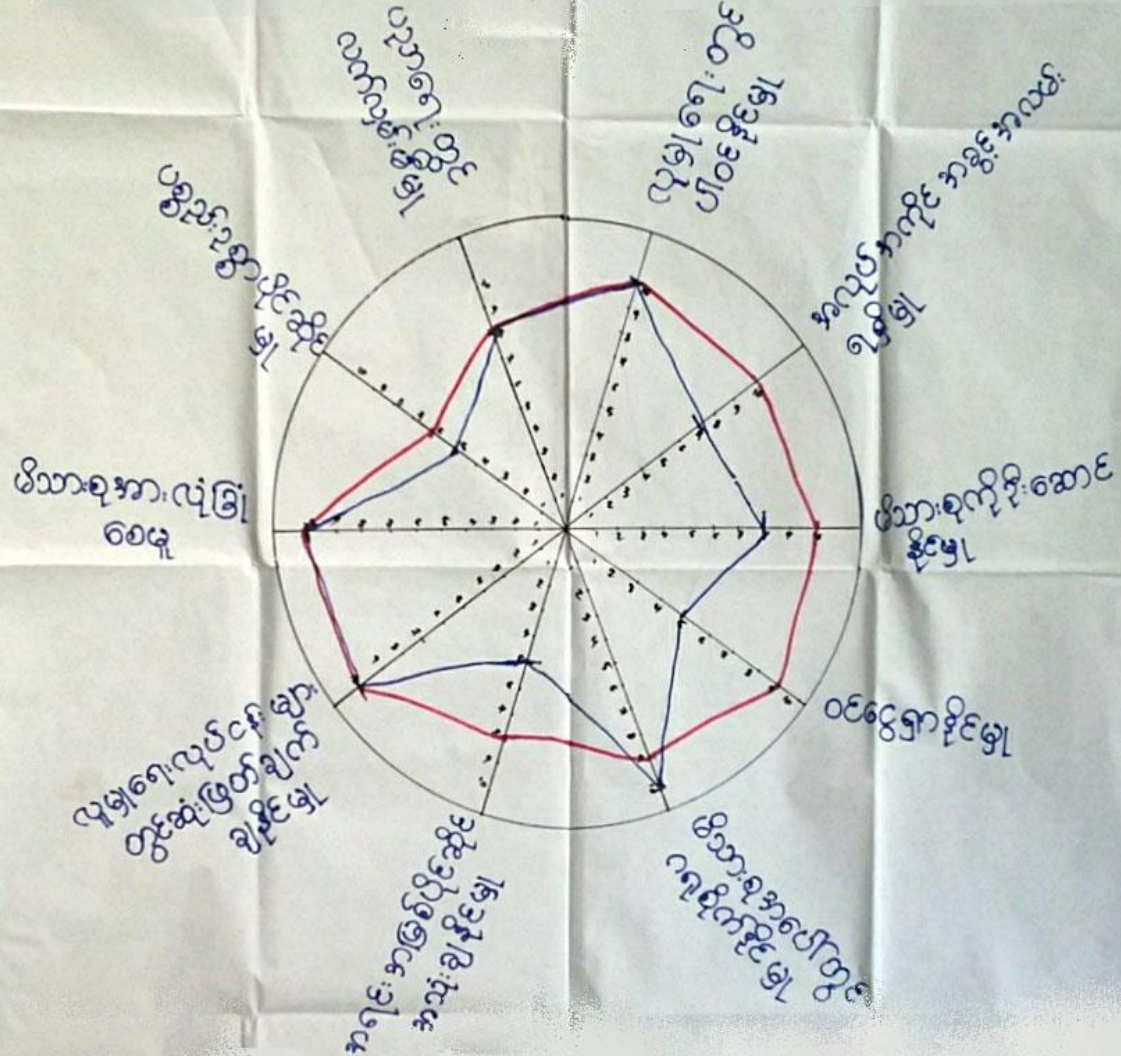 လူမှုရေးတွင်
ပါဝင်နိုင်မှု
အလုပ်အကိုင် အခွင့်အလမ်း
ရရှိမှု
မိသားစုကိုဦးဆောင်
နိုင်မှု
ဝင်ငွေရှာနိုင်မှု
မိသားစုအပေါ်တွင်
ဂရုစိုက်နိုင်မှု
အရင်းအမြစ်ပိုင်ဆိုင်
အသုံးချနိုင်မှု
လူမှုရေးလုပ်ငန်းများ
တွင်ဆုံးဖြတ်ချက်
ချနိုင်မှု
မိသားစုအားလုံခြုံ
စေမှု
ပစ္စည်းဥစ္စာပိုင်ဆိုင်
မှု